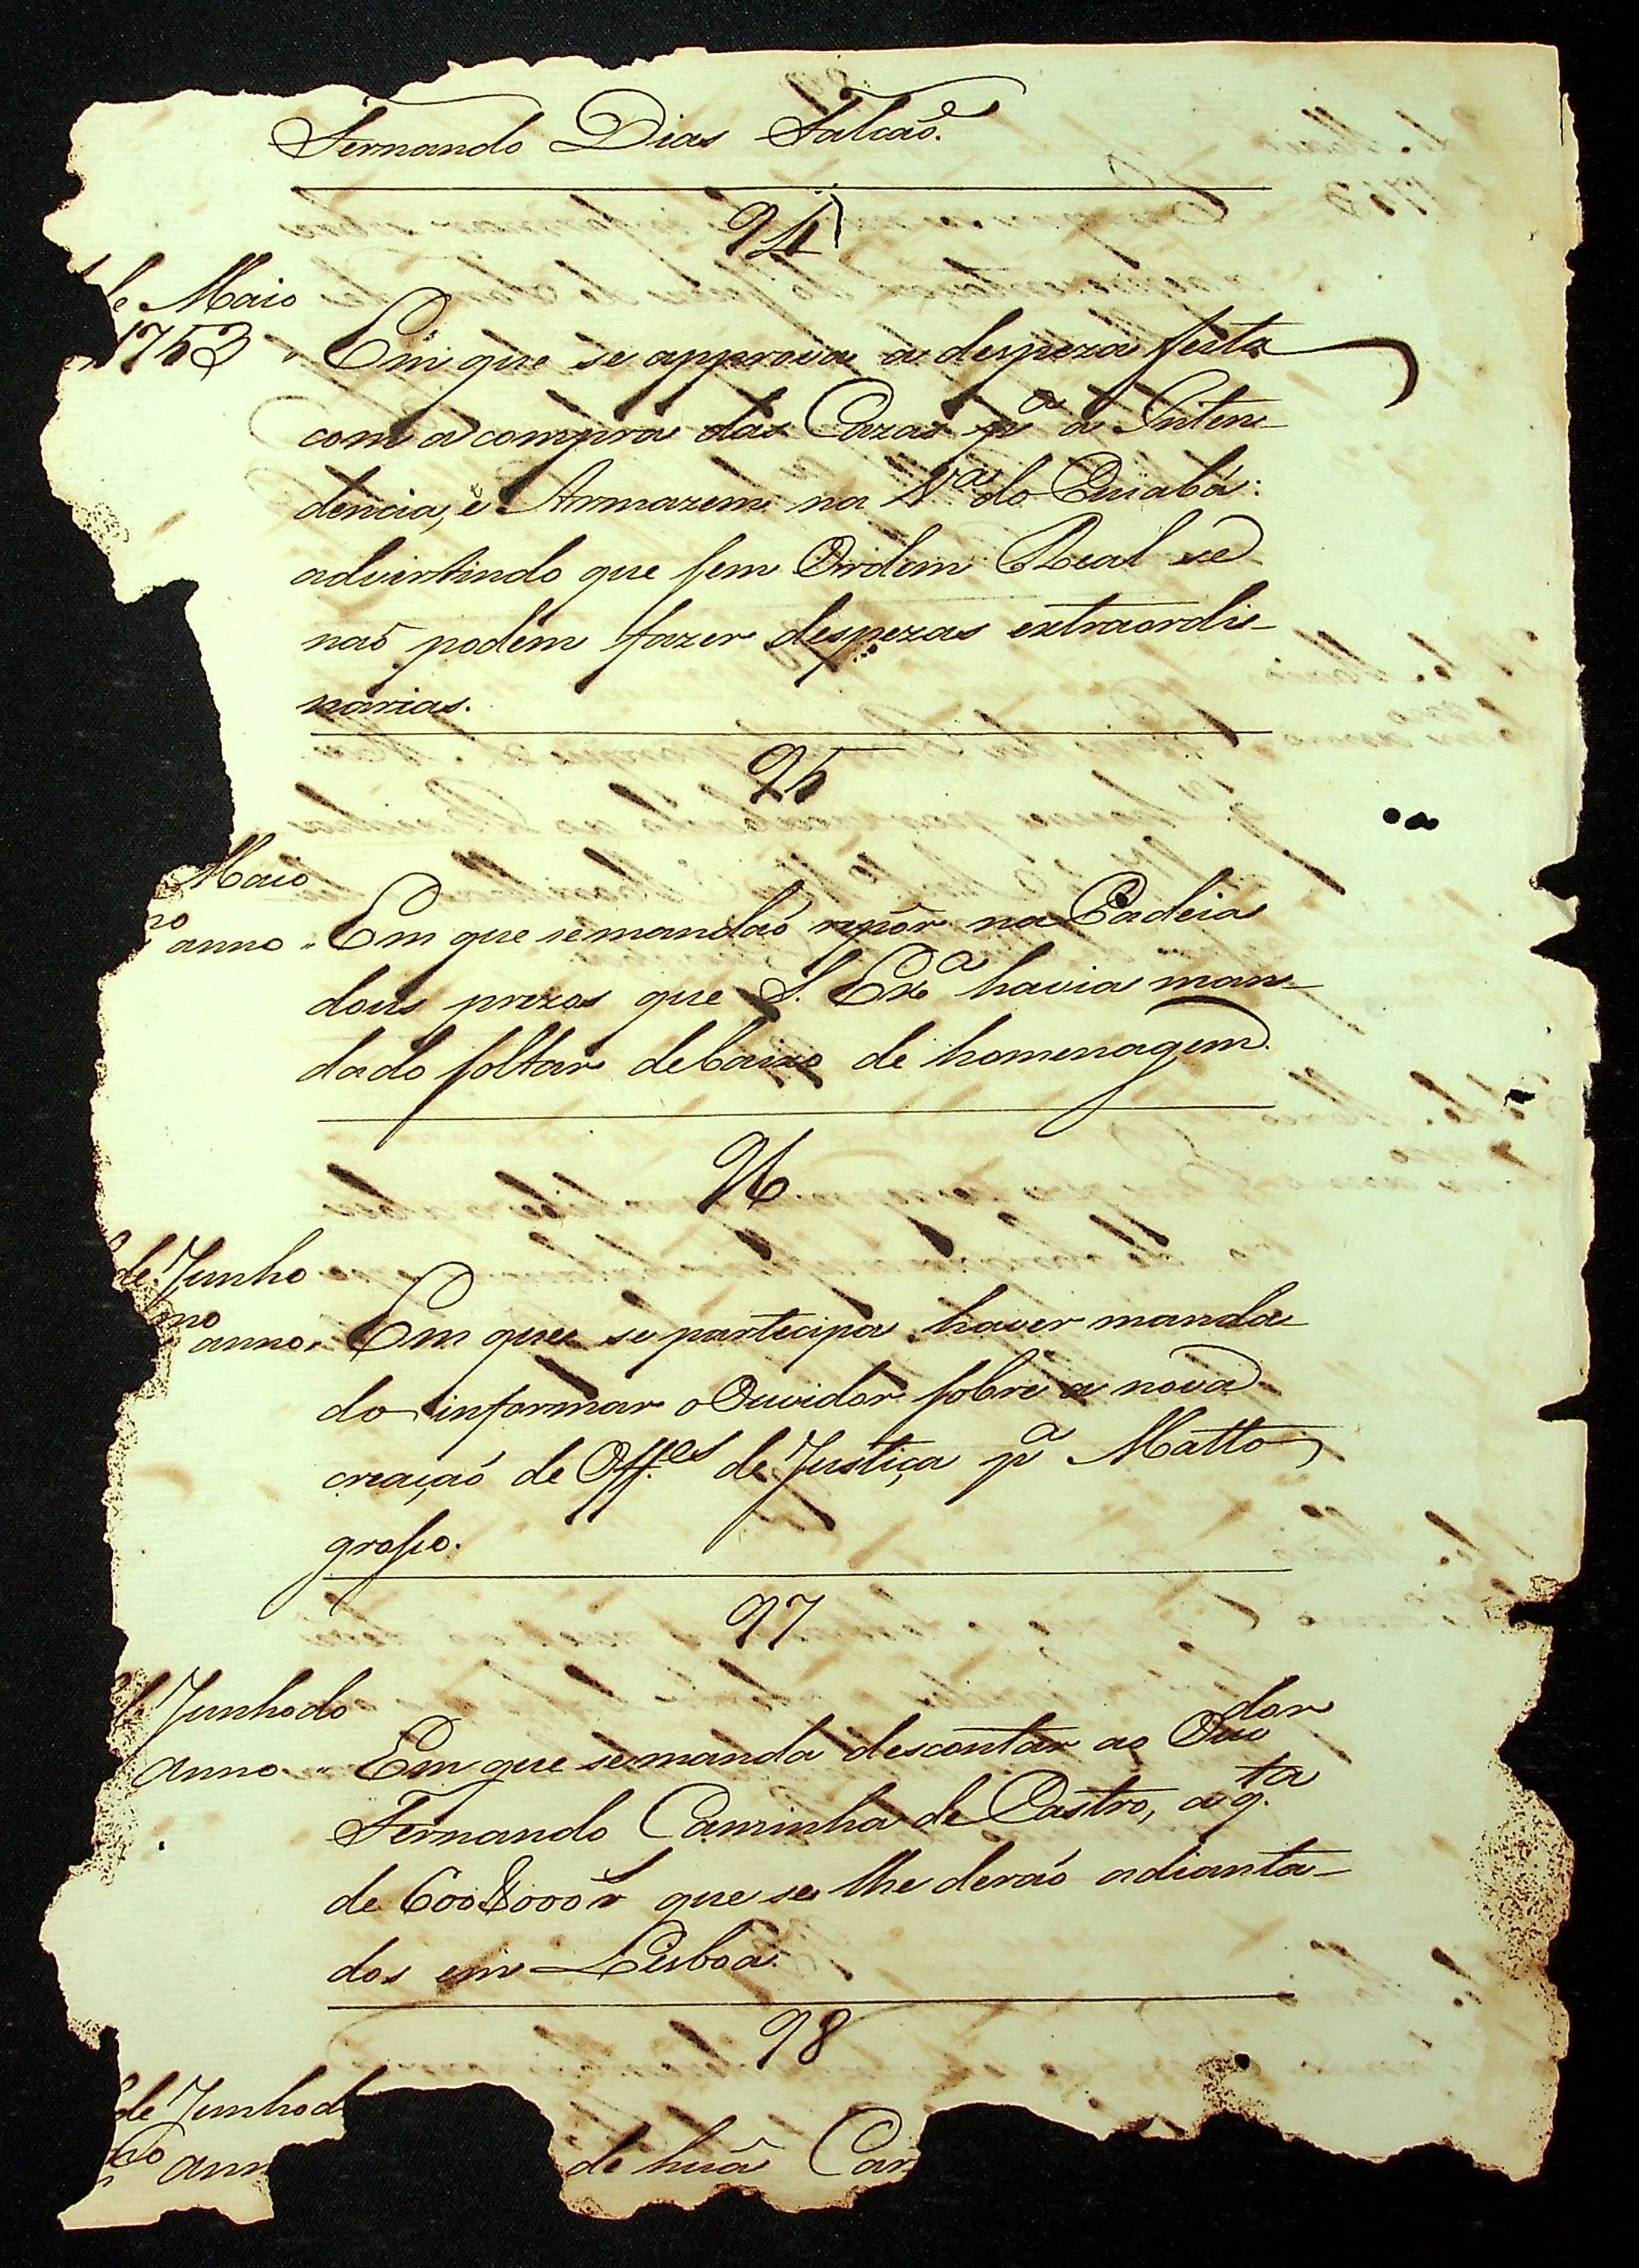 Fernando Dias Falcaõ.
94
de Maio
1753 " Em que se approva a despeza feita
com a compra das Cazas pª a Inten-
dencia, e Armazem na Vª do Cuiabá:
advertindo que sem Ordem Real se
naõ podem fazer despezas extraordi-
narias.
95
Maio
mo anno " Em que se mandaõ repôr na Cadeia
dous prezos que S. Exª havia man-
dado soltar debaixo de homenagem.
96
de Junho
mo anno " Em que se partecipa haver manda-
do informar o Ouvidor sobre a nova
creaçaõ de Off.es de Justiça pª Matto
grosso.
97
de Junho do
anno " Em que se manda descontar ao Ouvdor
Fernando Caminha de Castro, a q.ta
de 600$000 r que se lhe deraõ adianta-
dos em Lisboa.
98
de Junho d
mo ann
de huã Car